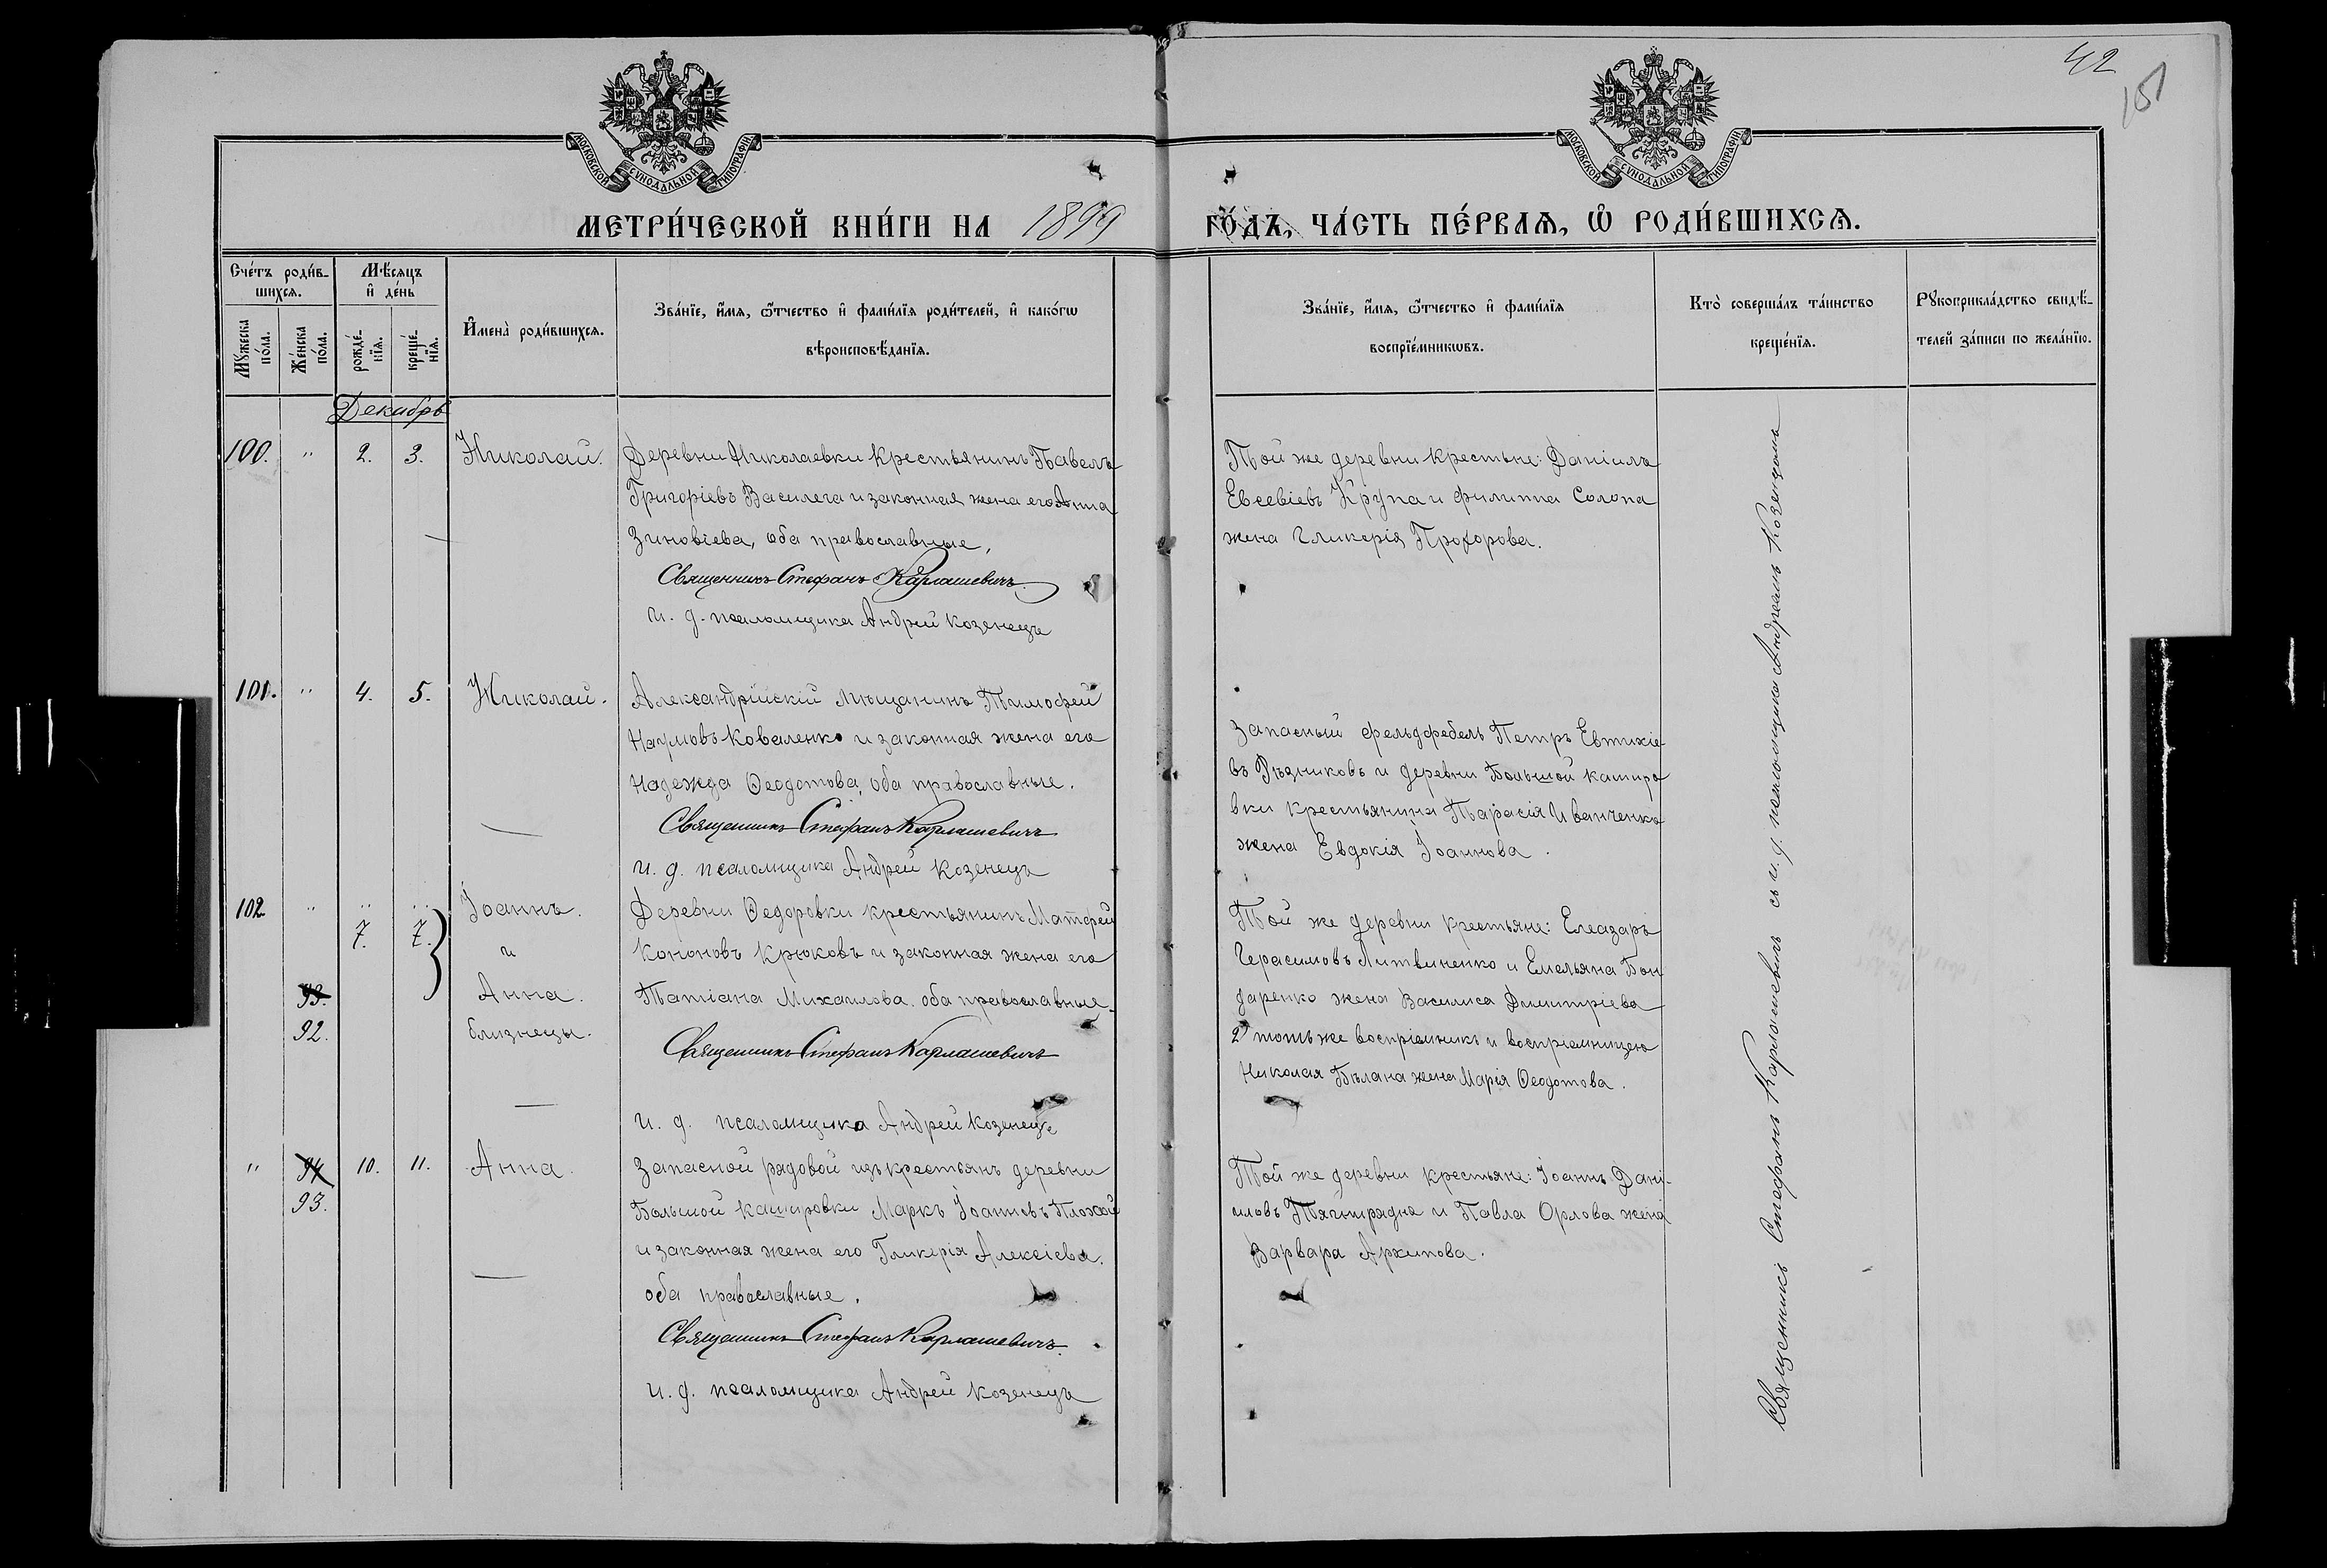 42
151
МОСКОВСКОЙ СѴНОДАЛЬНОЙ ТИПОГРАФІИ
МОСКОВСКОЙ СѴНОДАЛЬНОЙ ТИПОГРАФІИ
МЕТРИ́ЧЕСКОЙ КНИ́ГИ НА 1899 ГО́ДЪ, ЧА́СТЬ ПЕ́РВАѦ, Ѡ҆ РОДИ́ВШИХСѦ.
Сче́тъ роди́в-
шихсѧ.
Мꙋ́жеска по́ла.
Же́нска по́ла.
Мѣ́сѧцъ
и҆ де́нь
рожде́-
нїѧ.
креще́-
нїѧ.
И҆мена̀ роди́вшихсѧ.
Зва́нїе, и҆́мѧ, ѻ҆́тчество и҆ фами́лїѧ роди́телей, и҆ како́гѡ
вѣроисповѣ́данїѧ.
Зва́нїе, и҆́мѧ, ѻ҆́тчество и҆ фами́лїѧ
воспрїе́мникѡвъ.
Кто̀ соверша́лъ та́инство
креще́нїѧ.
Рꙋкоприкла́дство свидѣ́-
телей за́писи по жела́нїю.
Декабрь
100. " 2. 3. Николай.
Деревни Николаевки крестьянинъ Павелъ
Григоріевъ Василега и законная жена его Анна
Зиновіева, оба православные.
Священникъ Стефанъ Карлашевичъ
и. д. псаломщика Андрей Козенецъ
Той же деревни крестьне: Даніилъ
Евсевіевъ Крупа и Филиппа Солопа
жена Гликерія Прохорова.
101. " 4. 5. Николай.
Александрійскій мѣщанинъ Тимофей
Наумовъ Коваленко и законная жена его
Надежда Ѳеодотова, оба православные.
Священникъ Стефанъ Карлашевичъ
и. д. псаломщика Андрей Козенецъ
Запасный фельдфебель Петръ Евтихіе-
въ Рѣзниковъ и деревни Большой Каширо
вки крестьянина Тарасія Иванченка
жена Евдокія Іоаннова.
102 " " " Іоаннъ.
7. 7. и
93. Анна.
92. близнецы.
Деревни Ѳедоровки крестьянинъ Матфей
Кононовъ Крюковъ и законная жена его
Татіана Михаилова. оба православные.
Священникъ Стефанъ Карлашевичъ
и. д. псаломщика Андрей Козенецъ
Той же деревни крестьяне: Елеазаръ
Герасимовъ Литвиненко и Емельяна Бон
даренко жена Василиса Димитріева
2) тотъ же воспріемникъ и воспріемницею
Николая Бѣлана жена Марія Ѳеодотова.
" 94 10. 11. Анна.
93.
Запасной рядовой изъ крестьянъ деревни
Большой Кашировки Маркъ Іоанновъ Плохой
и законная жена его Гликерія Алексіева.
оба православные.
Священникъ Стефанъ Карлашевичъ.
и. д. псаломщика Андрей Козенецъ
Той же деревни крестьяне: Іоаннъ Дані-
иловъ Тягнирядна и Павла Орлова жена
Варвара Архипова.
Священникъ Стефанъ Карлашевичъ съ и. д. псаломщика Андреемъ Козенцомъ